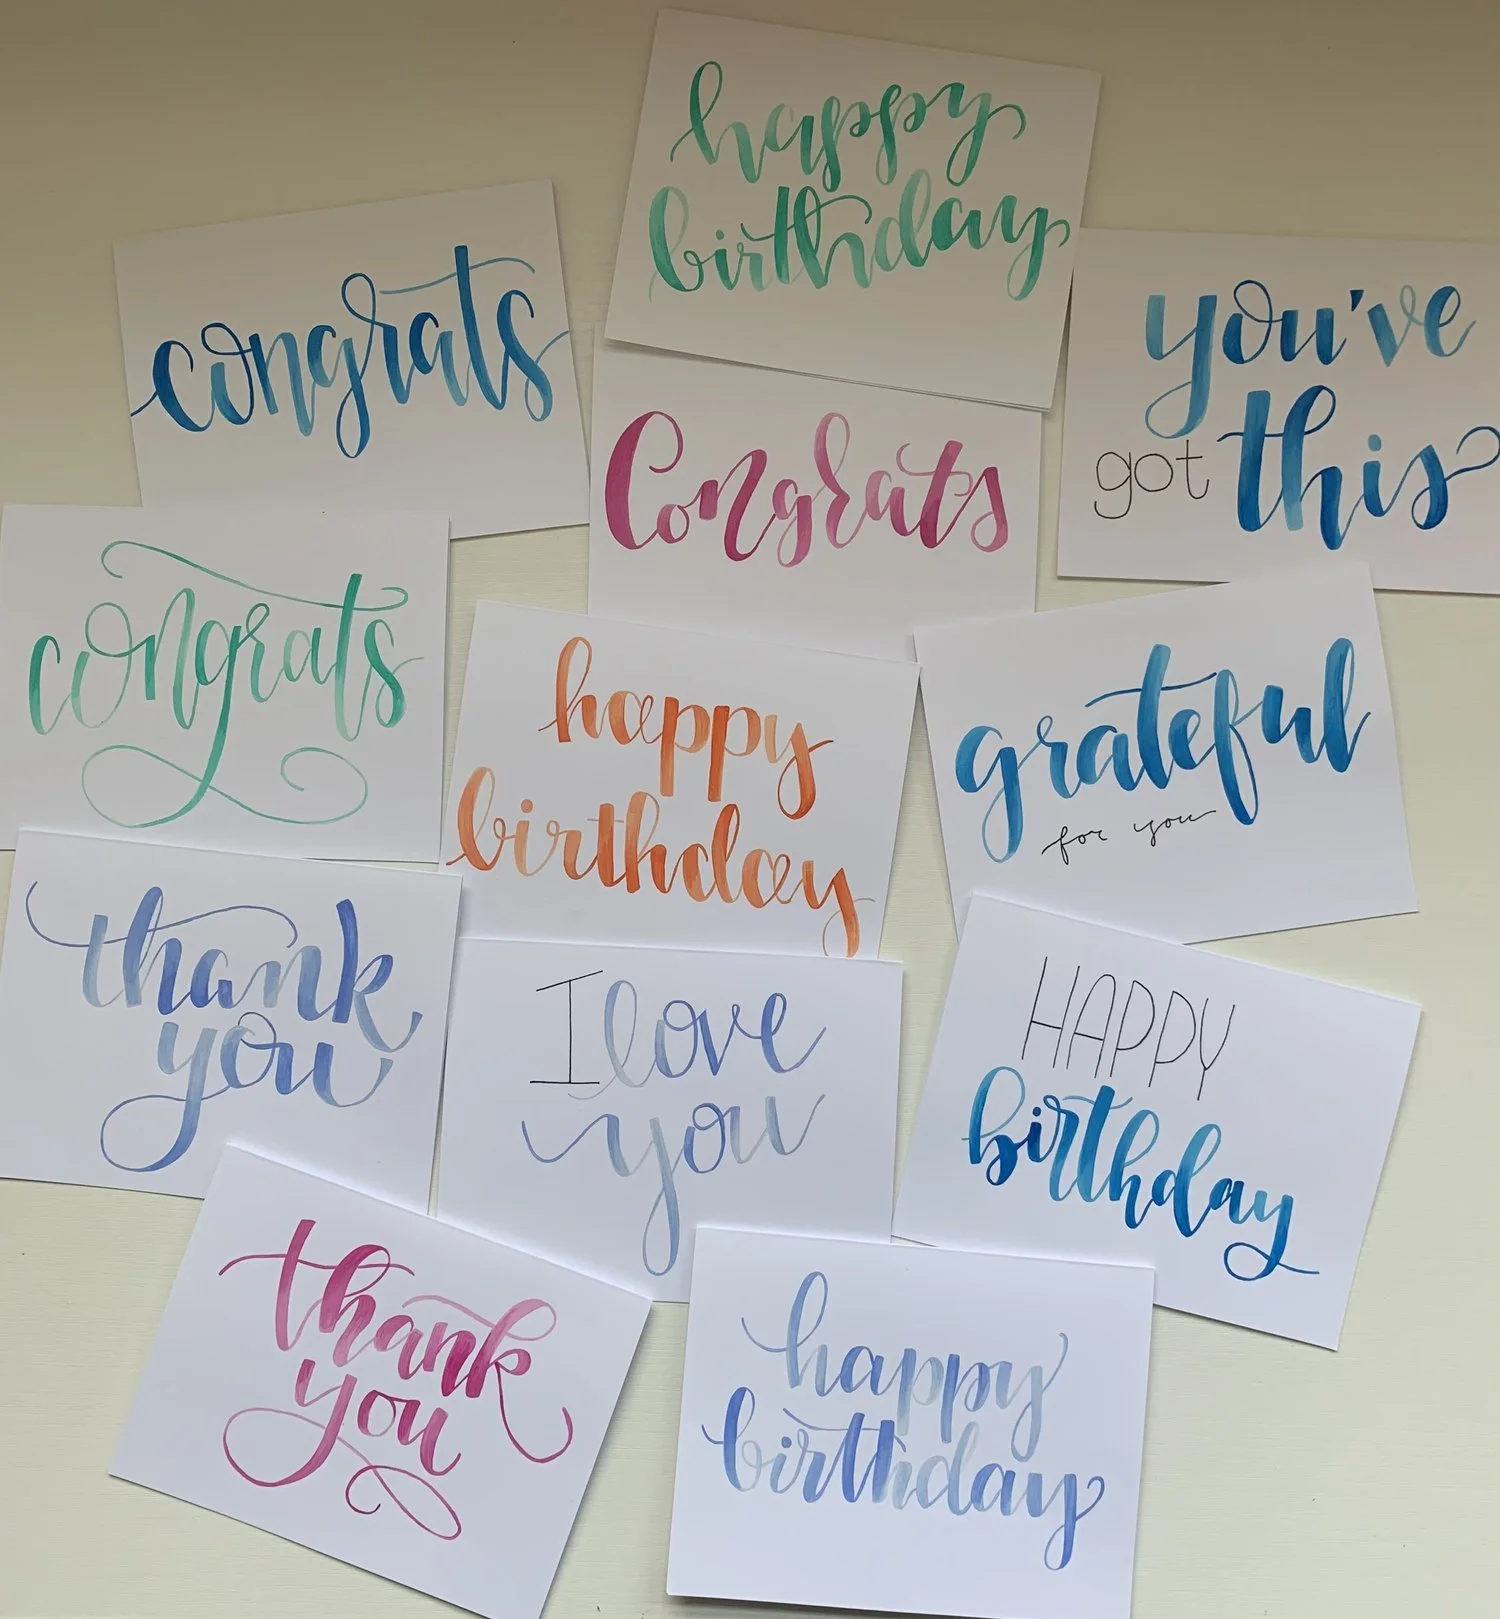 happy
birthday
congrats
you've
got this
Congrats
congrats
happy
birthday
grateful
for you
thank
you
I love
you
HAPPY
birthday
thank
you
happy
birthday